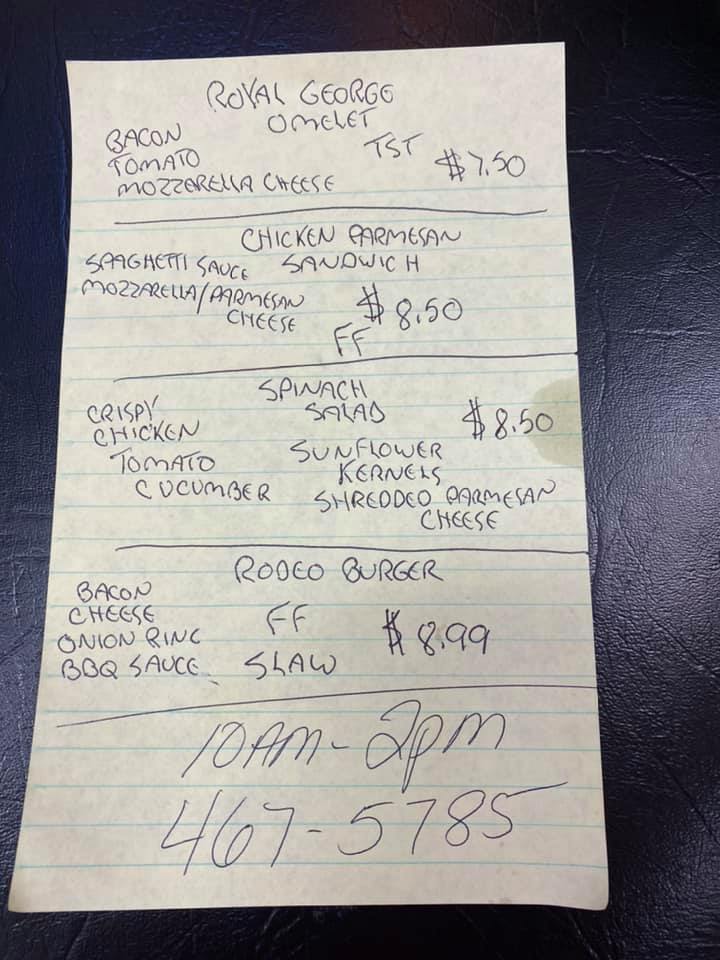 ROYAL GEORGE
OMELET
BACON
TOMATO
MOZZARELLA CHEESE
TST
$7.50
CHICKEN PARMESAN
SANDWICH
SPAGHETTI SAUCE
MOZZARELLA/PARMESAN
CHEESE
$8.50
FF
SPINACH
SALAD
$8.50
CRISPY
CHICKEN
TOMATO
CUCUMBER
SUNFLOWER
KERNELS
SHREDDED PARMESAN
CHEESE
RODEO BURGER
BACON
CHEESE
ONION RING
BBQ SAUCE
FF
SLAW
$8.99
10AM-2pm
467-5785